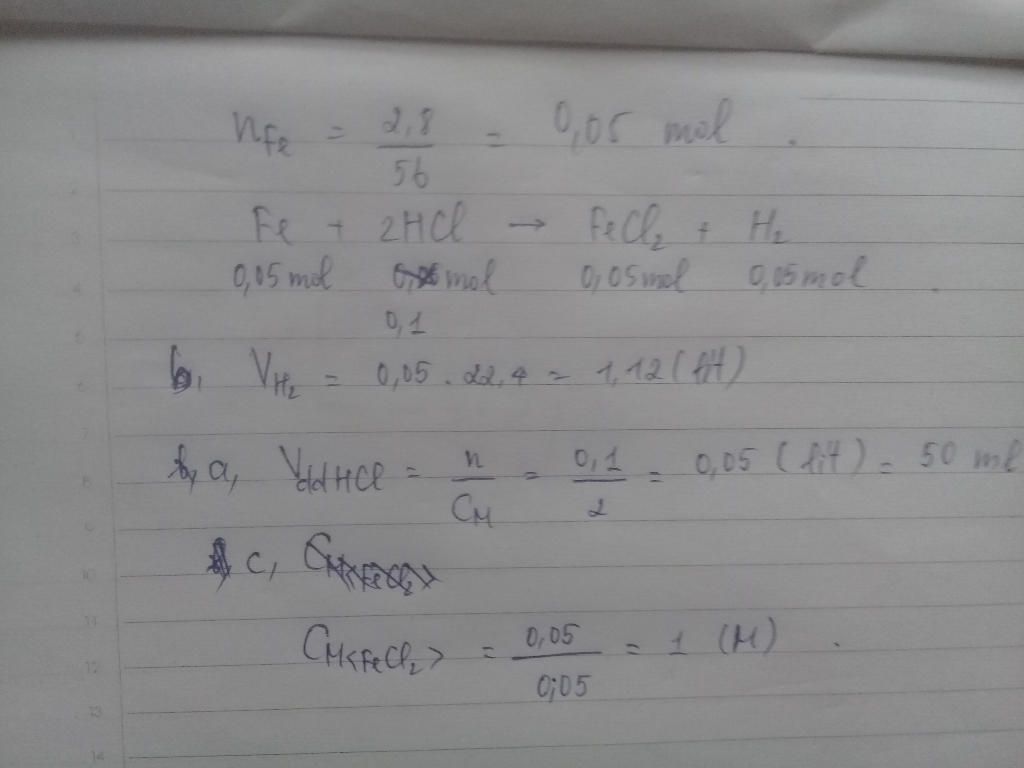 nFe = 2,8/56 = 0,05 mol.
Fe + 2HCl → FeCl₂ + H₂
0,05 mol mol 0,05 mol 0,05 mol
0,1
b, VH₂ = 0,05 . 22,4 = 1,12 (lít)
a, VddHCl = n/CM = 0,1/2 = 0,05 (lít) = 50 ml
c,
CM<FeCl₂> = 0,05/0,05 = 1 (M).